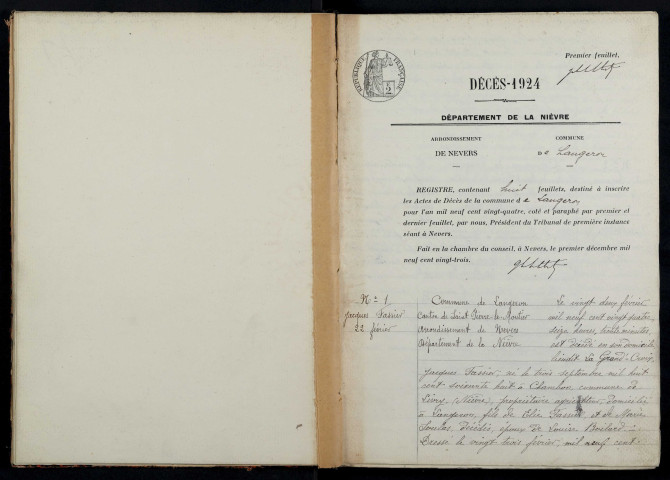 Premier feuillet,
RÉPUBLIQUE FRANÇAISE
DÉCÈS-1924
DÉPARTEMENT DE LA NIÈVRE
ARRONDISSEMENT
DE NEVERS
COMMUNE
DE Langeron
REGISTRE, contenant huit feuillets, destiné à inscrire
les Actes de Décès de la commune de Langeron
pour l'an mil neuf cent vingt-quatre, coté et paraphé par premier et
dernier feuillet, par nous, Président du Tribunal de première instance
séant à Nevers.
Fait en la chambre du conseil, à Nevers, le premier décembre mil
neuf cent vingt-trois.
N° 1
Jacques Tassier
22 février
Commune de Langeron
Canton de Saint Pierre-le-Moutier
Arrondissement de Nevers
Département de la Nièvre
Le vingt deux février
mil neuf cent vingt quatre
seize heures, trente minutes
est décédé en son domicile
lieudit La Grand-
Jacques Tassier, né le trois septembre mil huit
cent soixante huit à Chambon commune de
Livry (Nièvre), propriétaire agriculteur, domicilié
à Langeron, fils de Tassier et de Marie
décédés, époux de Louise
Dressé le vingt trois février, mil neuf cent